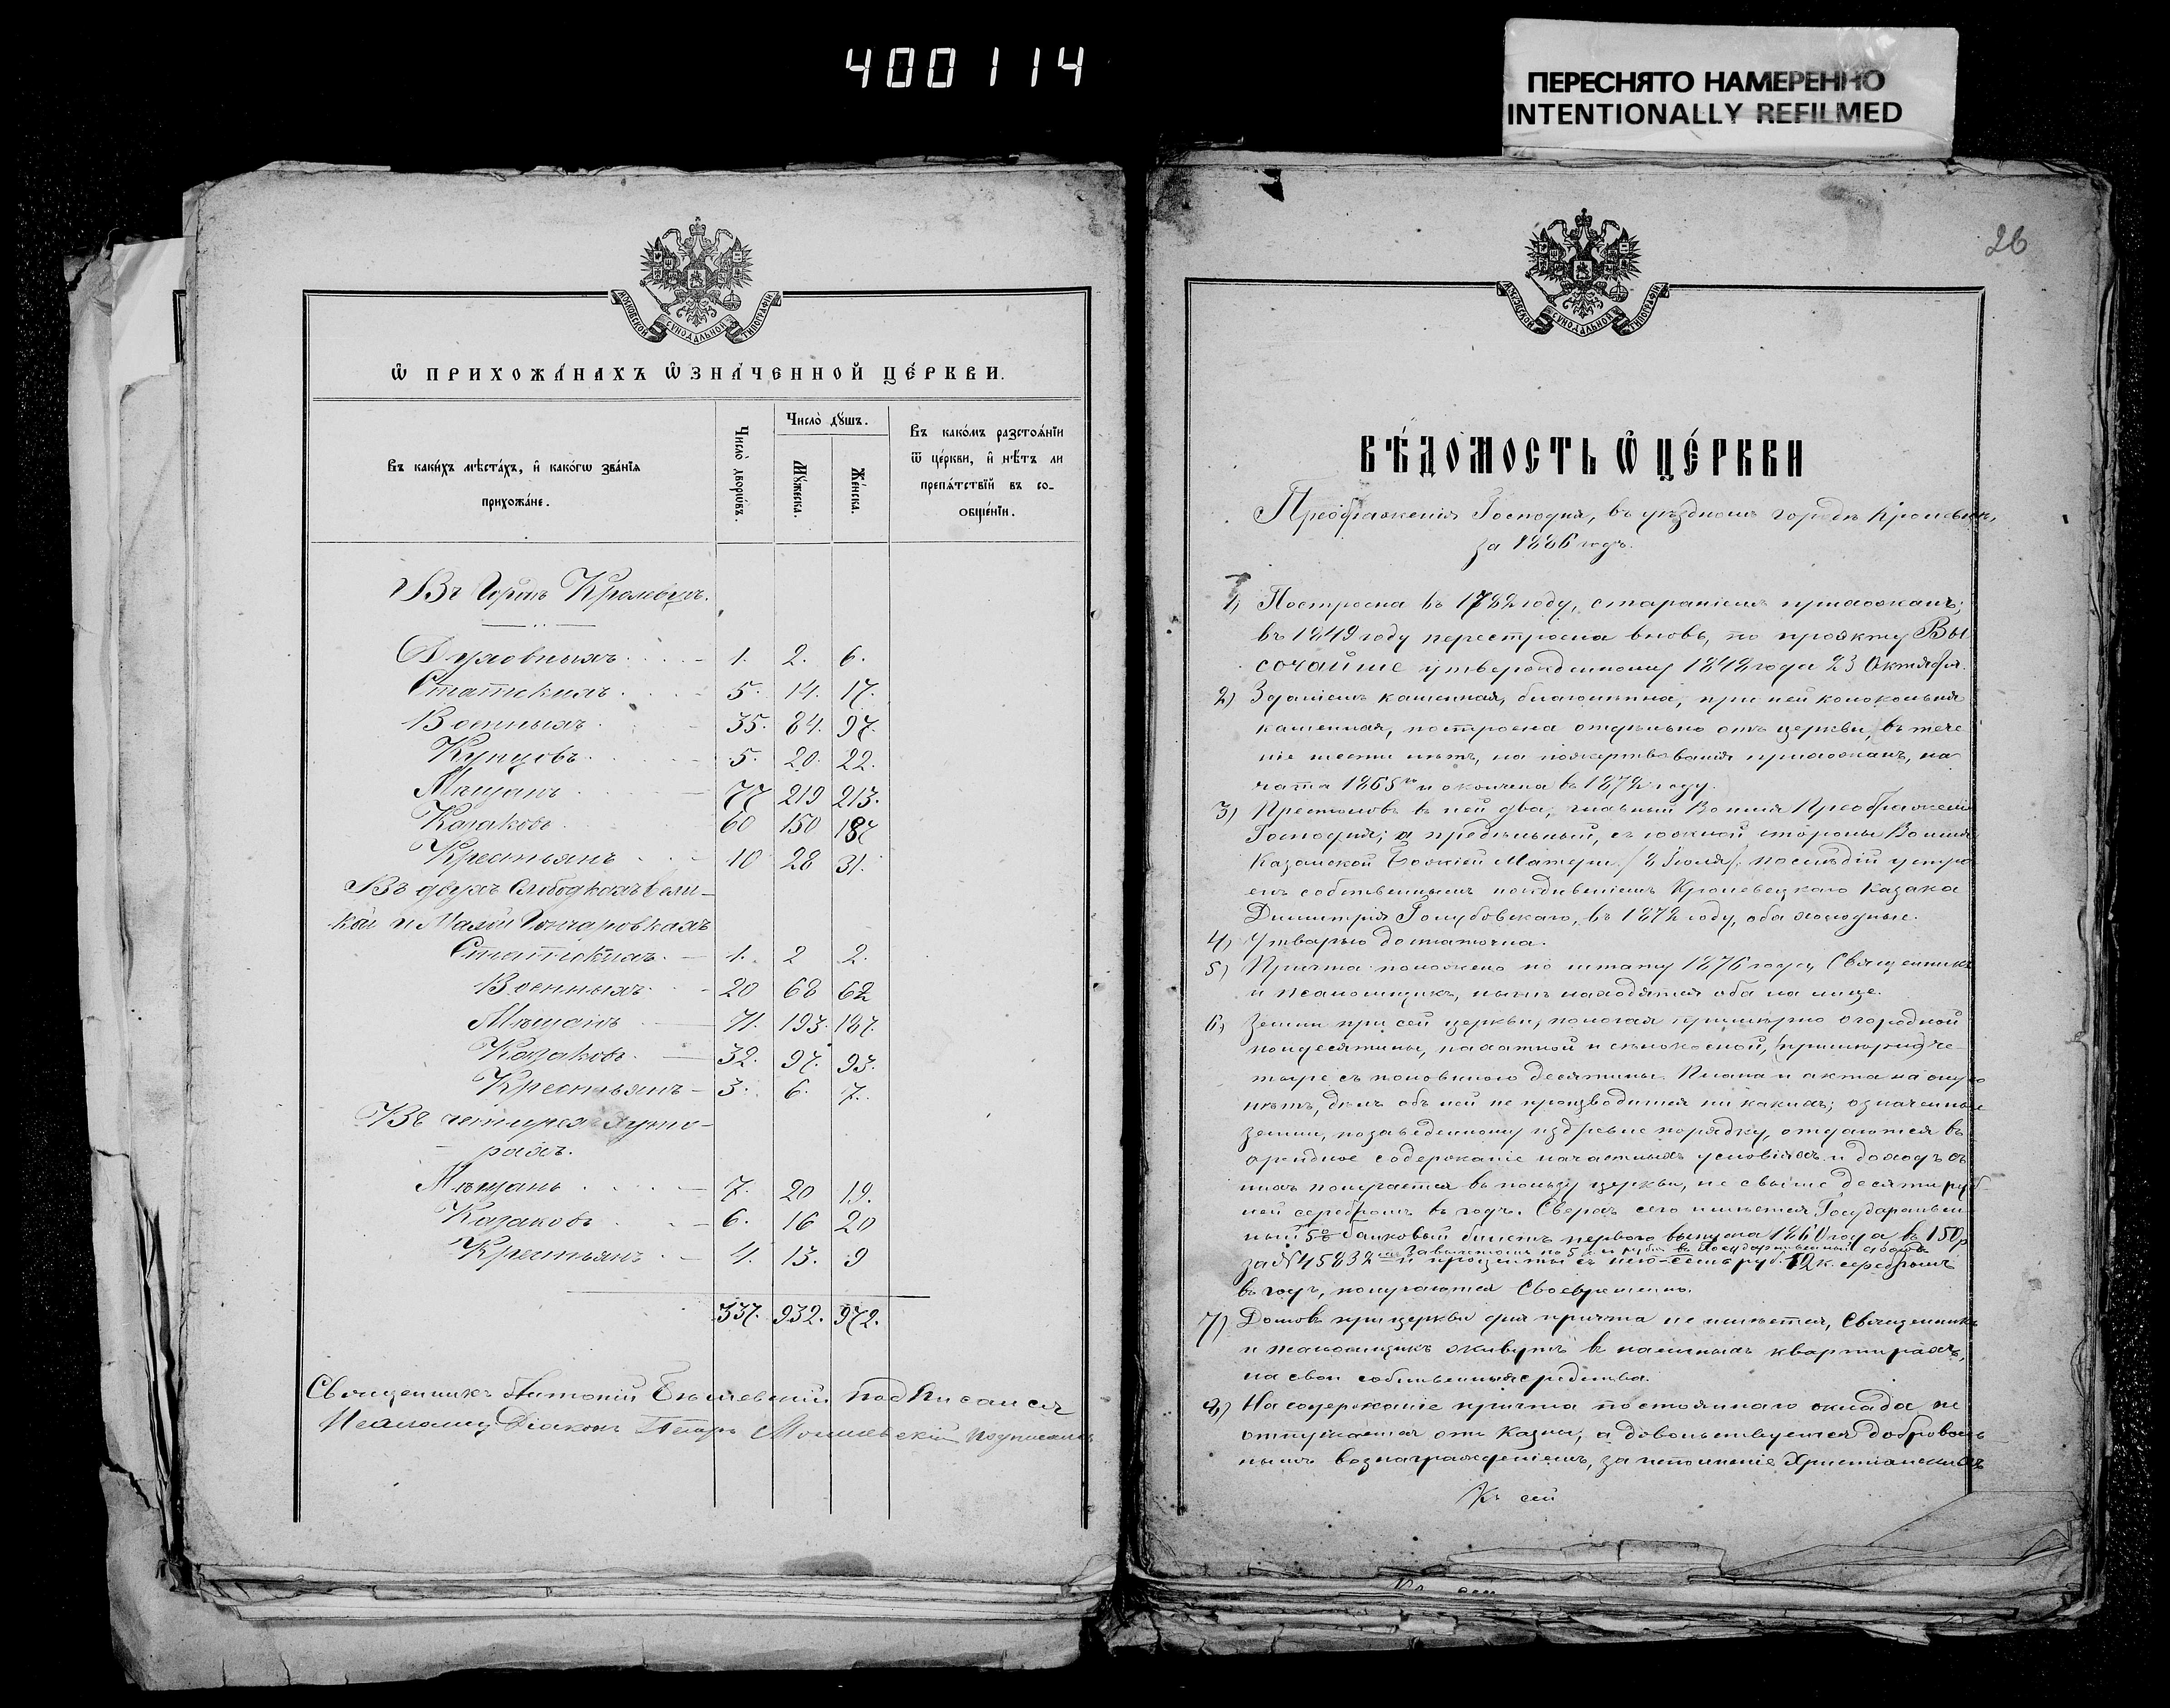 400114
ПЕРЕСНЯТО НАМЕРЕННО
INTENTIONALLY REFILMED
МОСКОВСКОЙ СѴНОДАЛЬНОЙ ТИПОГРАФІИ
Ѡ ПРИХОЖА́НАХЪ Ѡ҆ЗНА́ЧЕННОЙ ЦЕ́РКВИ.
Въ каки́хъ мѣста́хъ, и҆ како́гѡ зва́нїѧ прихожа́не.
Число̀ дворѡ́въ.
Число̀ дꙋ́шъ.
Мꙋ́жеска.
Же́нска.
Въ како́мъ разстоѧ́нїи
ѿ це́ркви, и҆ нѣ́тъ ли
препѧ́тствїй въ со-
ѻбще́нїи.
Въ Городѣ Кролевцѣ.
Духовныхъ 1. 2. 6.
Статскихъ 5. 14. 17.
Военныхъ 35. 84. 97.
Купцовъ 5. 20. 22.
Мѣщанъ 77 219 213.
Казаковъ 60 150 187
Крестьянъ 10 28 31.
Въ двухъ Слободкахъ Вели-
кой и Малой Гончаровкахъ
Статскихъ 1. 2 2.
Военныхъ 20 68 62
Мѣщанъ 71. 193. 187.
Казаковъ 32. 97. 93.
Крестьянъ 3. 6. 7.
Въ четырехъ Хуто-
рахъ.
Мѣщанъ 7. 20 19.
Казаковъ 6. 16 20
Крестьянъ 4. 13. 9
337. 932. 972.
Священникъ Антоній подписался
Псаломщ. Діаконъ Петръ подписался
26
МОСКОВСКОЙ СѴНОДАЛЬНОЙ ТИПОГРАФІИ
ВѢ́ДОМОСТЬ Ѡ ЦЕ́РКВИ
Преображенія Господня, въ уѣздномъ городѣ Кролевцѣ,
за 1886 годъ.
1) Построена въ 1782 году, стараніемъ прихожанъ;
въ 1849 году перестроена вновь, по проэкту Вы
сочайше утвержденному 1848 года 23 Октября.
2) Зданіемъ каменная, благолѣпна, при ней колокольня
каменная, построена отдѣльно отъ церкви, въ тече
ніе шести лѣтъ, на пожертвованія прихожанъ, на
чата 1865го и окончена въ 1872 году.
3) Престоловъ въ ней два; главный Во имя Преображенія
Господня; а предѣльный, съ южной стороны Во имя
Казанской Божіей Матери /8 Іюля/. послѣдій устро
енъ собственнымъ иждивеніемъ Кролевецкаго Казака
Димитрія Голубовскаго, въ 1872 году, оба холодные.
4) Утварью достаточна.
5) Причта положено по штату 1876 года, Священникъ
и псаломщикъ, нынѣ находятся оба на лице.
6) Земли при сей церкви, полагая примѣрно огородной
полдесятины, пахатной и сѣнокосной, (примѣрно) че-
тыре съ половиною десятины. Плана и акта на оную
нѣтъ, дѣлъ объ ней не производится ни какихъ; означенные
земли, по заведенному издревле порядку, отдаются въ
арендное содержаніе на частныхъ условіяхъ и доходъ съ
нихъ получается въ пользу церкви, не свыше десяти руб-
лей серебромъ въ годъ. Сверхъ сего имѣется Государствен
ный 5% банковый билетъ перваго выпуска 1860 года въ 150 р
за вычетомъ по 5 к. съ рубля въ Государственный сборъ
за № 45832 и проценты съ него семь руб. 12 к. серебромъ
въ годъ, получаются своевременно.
7) Домовъ при церкви для причта не имѣется, Священникъ
и псаломщикъ живутъ въ наемныхъ квартирахъ,
на свои собственныя средства.
8) На содержаніе причта постояннаго оклада не
отпускается отъ Казны, а довольствуется доброволь
нымъ вознагражденіемъ, за исполненіе Христіанскихъ
Къ сей